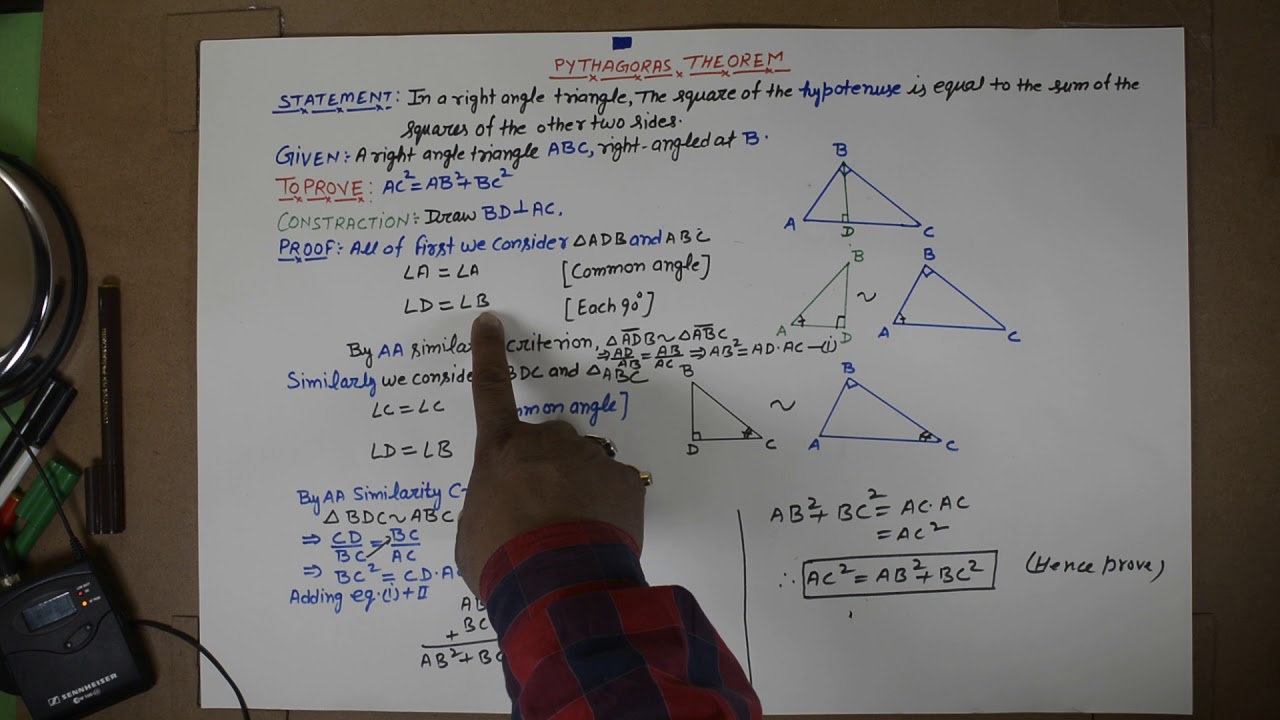 PYTHAGORAS THEOREM
STATEMENT: In a right angle triangle, The square of the hypotenuse is equal to the sum of the
squares of the other two sides.
GIVEN: A right angle triangle ABC, right-angled at B.
TO PROVE: AC² = AB² + BC²
CONSTRACTION: Draw BD⊥AC.
PROOF: All of first we consider △ADB and ABC
∠A = ∠A [Common angle]
∠D = ∠B [Each 90°]
By AA criterion, △ADB ~ △ABC
⇒ AD/AB = AB/AC ⇒ AB² = AD·AC —(i)
Similarly we BDC and △ABC
∠C = ∠C angle]
∠D = ∠B
By AA Similarity
△BDC ~ ABC
⇒ CD/BC = BC/AC
⇒ BC² = CD·
Adding eq.(i) + II
+ BC
AB² +
B
A D C
B
A D
~
B
A C
B
D C
~
B
A C
AB² + BC² = AC·AC
= AC²
∴ AC² = AB² + BC² (Hence prove)
SENNHEISER